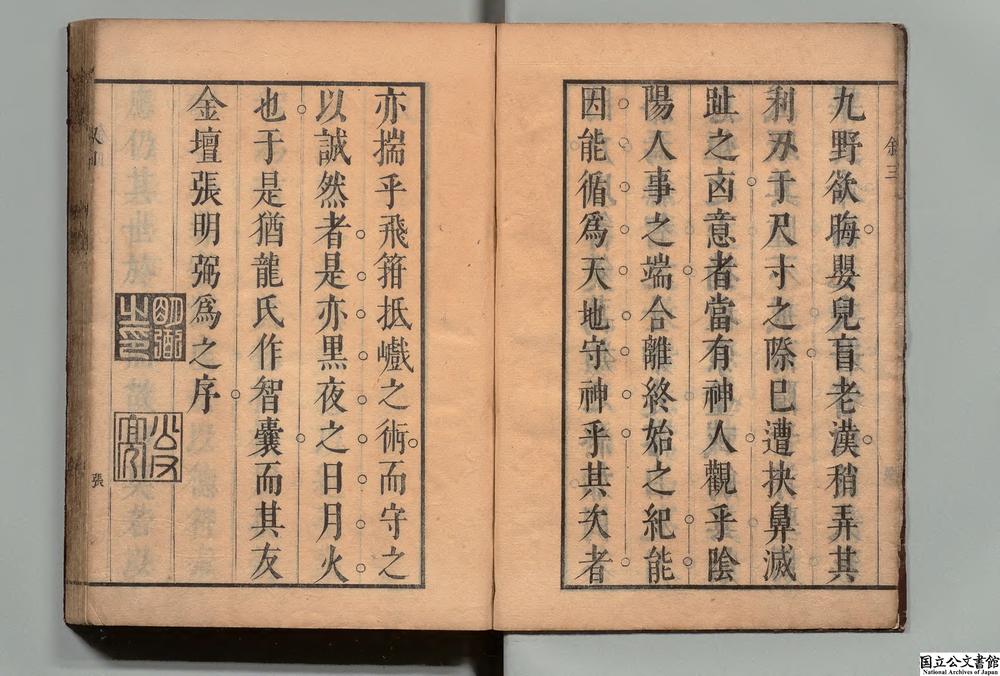 叙三
九野欲晦嬰兒盲老漢稍弄其
利刃于尺寸之際巳遭抉鼻滅
趾之凶意者當有神人觀乎陰
陽人事之端合離終始之紀能
因能循爲天地守神乎其次者
亦揣乎飛箝抵巇之術而守之
以誠然者是亦黑夜之日月火
也于是猶龍氏作智囊而其友
金壇張明弼爲之序
明弼之印
公文
張
国立公文書館
National Archives of Japan